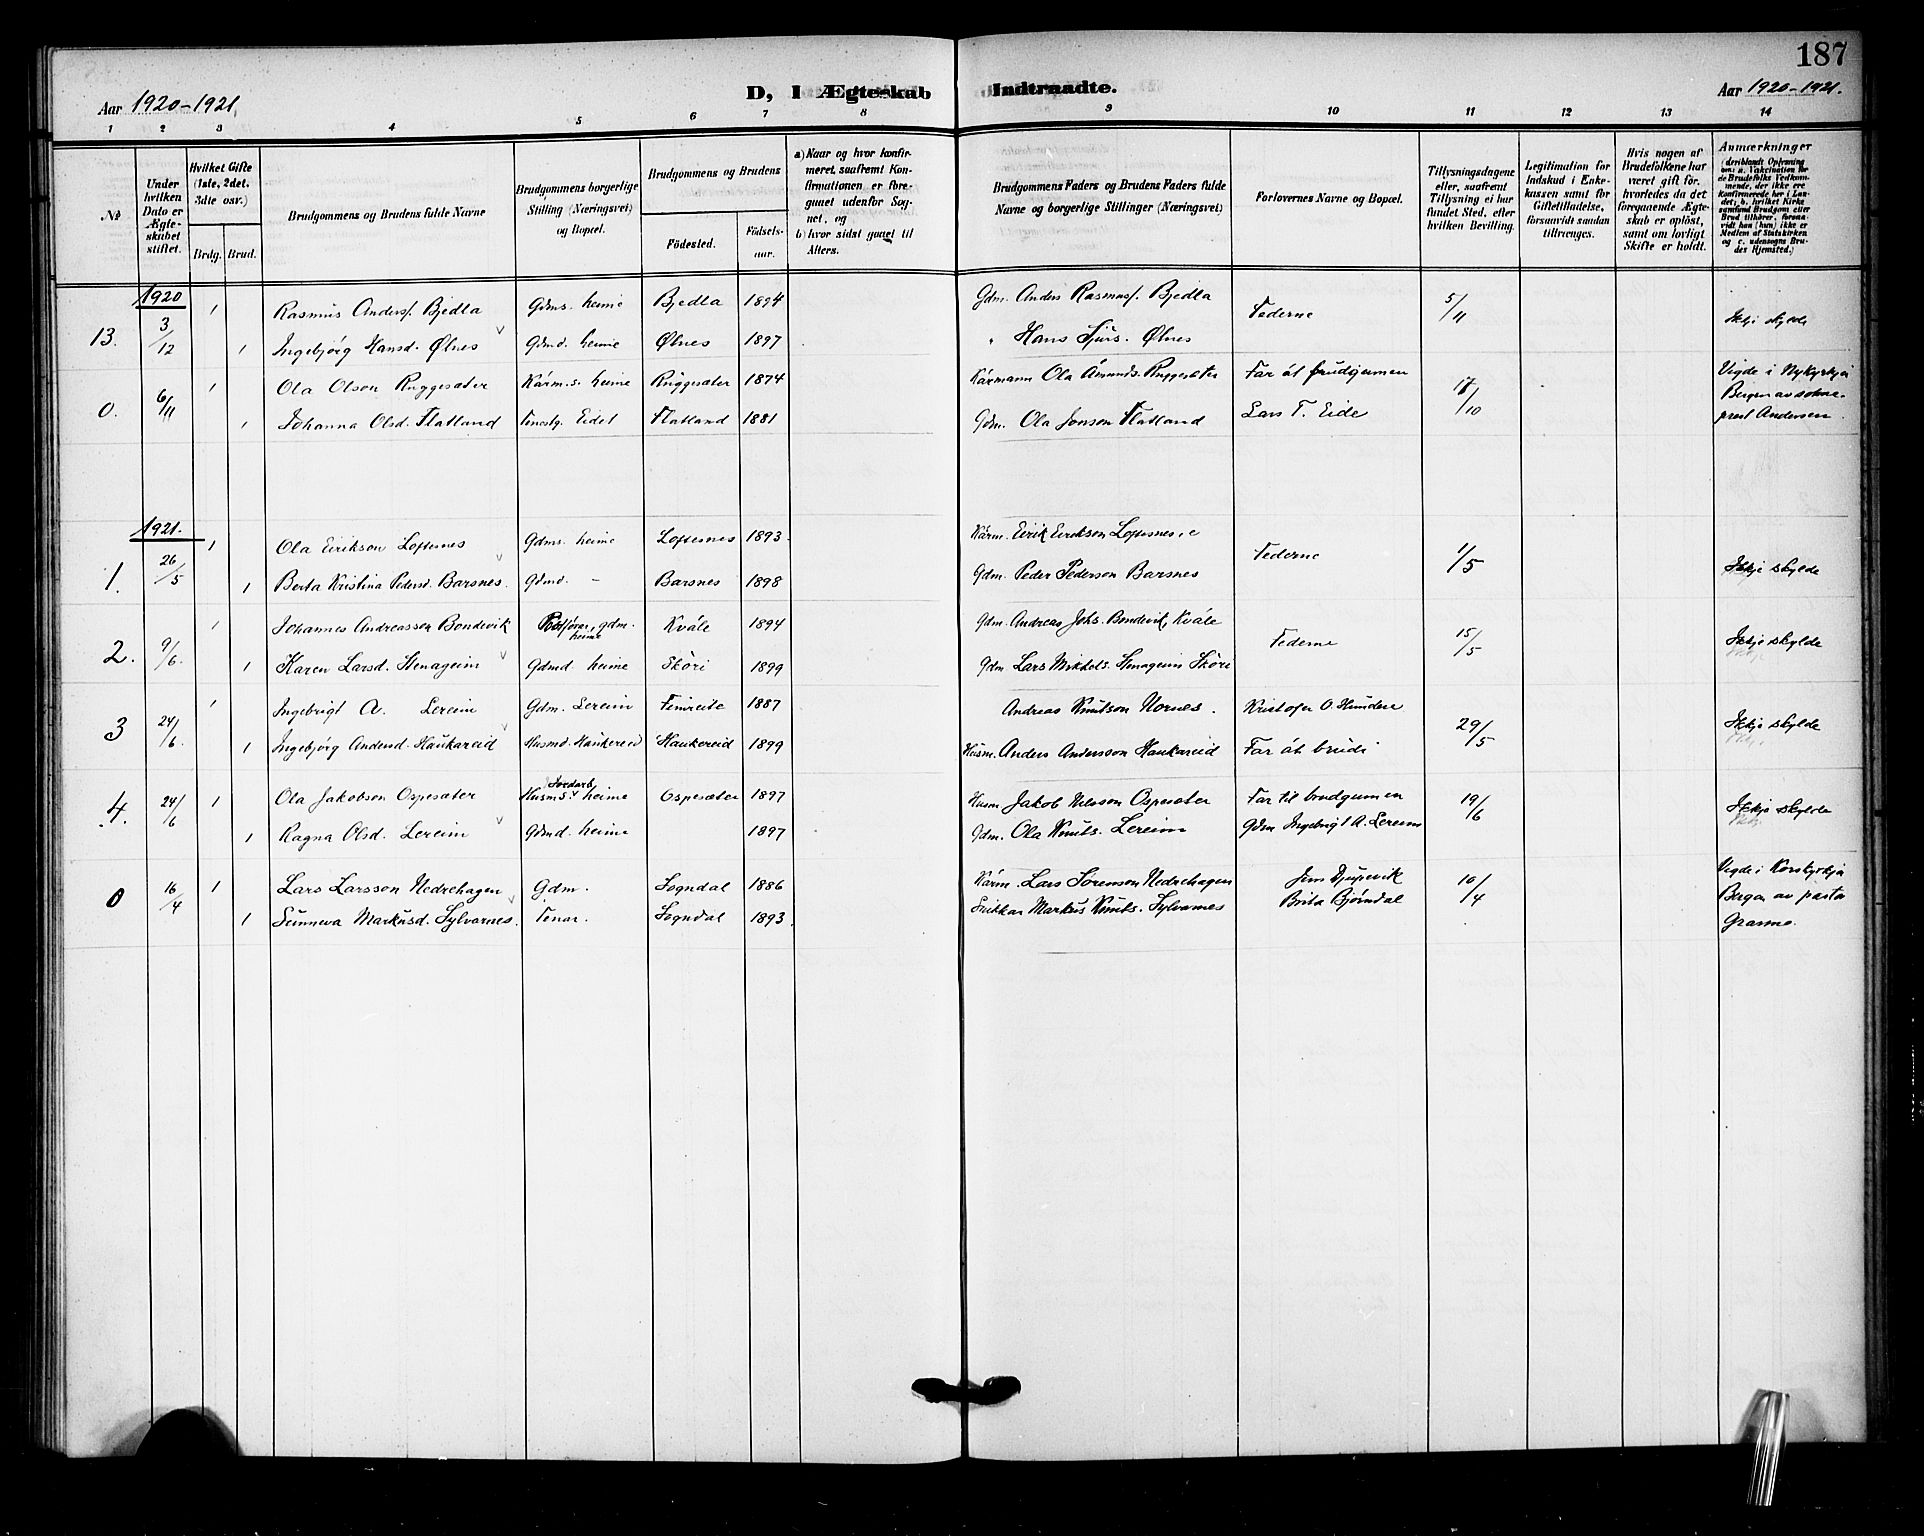 187
Aar 1920-1921. D, I Ægteskab Indtraadte. Aar 1920-1921.
1 2 3 4 5 6 7 8 9 10 11 12 13 14
№
Under hvilken Dato er Ægteskabet stiftet.
Hvilket Gifte (1ste, 2det, 3dte osv.)
Brdg. Brud.
Brudgommens og Brudens fulde Navne
Brudgommens borgerlige Stilling (Næringsvei) og Bopæl.
Brudgommens og Brudens
Födested. Födselsaar.
a) Naar og hvor konfirmeret, saafremt Konfirmationen er foregaaet udenfor Sognet, og
b) hvor sidst gaaet til Alters.
Brudgommens Faders og Brudens Faders fulde Navne og borgerlige Stillinger (Næringsvei)
Forlovernes Navne og Bopæl.
Tillysningsdagene eller, saafremt Tillysning ei har fundet Sted, efter hvilken Bevilling.
Legitimation for Indskud i Enkekassen samt for Giftetilladelse, forsaavidt saadan tiltrænges.
Hvis nogen af Brudefolkene har været gift för, hvorledes da det foregaaende Ægteskab er oplöst, samt om lovligt Skifte er holdt.
Anmærkninger (deriblandt Oplysning om: a. Vakcination for de Brudefolks Vedkommende, der ikke ere konfirmerede her i Landet; b. hvilket Kirkesamfund Brudgom eller Brud tilhörer, forsaavidt han (hun) ikke er Medlem af Statskirken og c. udensogns Brudes Hjemsted.)
1920
13. 3/12 1 Rasmus Anders. Bjedla Gdms. heime Bjedla 1894 Gdm. Anders Rasmus. Bjedla Federne 5/11 Ikkje skylde
1 Ingebjörg Hansd. Ølnes Gdmd. heime Ølnes 1897 " Hans Sjurs. Ølnes
0. 6/11 1 Ola Olson Ruggesæter Kårm.s. heime Ruggesæter 1874 Kårmann Ola Åmunds. Ruggesæter Far åt brudgumen 17/10 Vigde i Nykyrkja
Bergen av sokneprest Andersen.
1 Johanna Olsd. Flatland Tenestg. Eidet Flatland 1881 Gdm. Ola Jonson Flatland Lars T. Eide
1921.
1. 26/5 1 Ola Eirikson Loftesnes Gdms. heime Loftesnes 1893 Kårm. Eirik Eirikson Loftesnes Federne 1/5 Ikkje skylde
1 Berta Kristina Pedersd. Barsnes. Gdmd. - Barsnes 1898 Gdm. Peder Pederson Barsnes
2. 9/6 1 Johannes Andreasson Bondevik gdm. heime Kvåle 1894 Gdm. Andreas Johs. Bondevik, Kvåle Federne 15/5 Ikkje skylde
1 Karen Larsd. Stenageim Gdmd. heime Sköri 1899 Gdm Lars Mikkels. Stenageim Sköri
3 24/6 1 Ingebrigt A. Lereim Gdm. Lereim Fimreite 1887 Andreas Knutson Nornes. Kristofer O. Hundere 29/5 Ikkje skylde
1 Ingebjörg Andersd. Haukareid Husmd. Haukereid Haukereid 1899 Husm. Anders Andersson Haukareid Far åt brudi
4. 24/6 1 Ola Jakobson Ospesæter Jordarb. Husms. heime Ospesæter 1897 Husm Jakob Nilsson Ospesæter Far til brudgumen 19/6 Ikkje skylde
1 Ragna Olsd. Lereim Gdmd. heime 1897 Gdm. Ola Knuts. Lereim Gdm Ingebrigt A. Lereim
0 16/4 1 Lars Larsson Nedrehagen Gdm. Sogndal 1886 Kårm. Lars Sörenson Nedrehagen Jens Djupevik 10/4 Vigde i Korskyrkja
Bergen av pastor
1 Sunneva Markusd. Sylvarnes. Tenar. Sogndal 1893 Snikkar Markus Knuts. Sylvarnes Brita Bjørndal